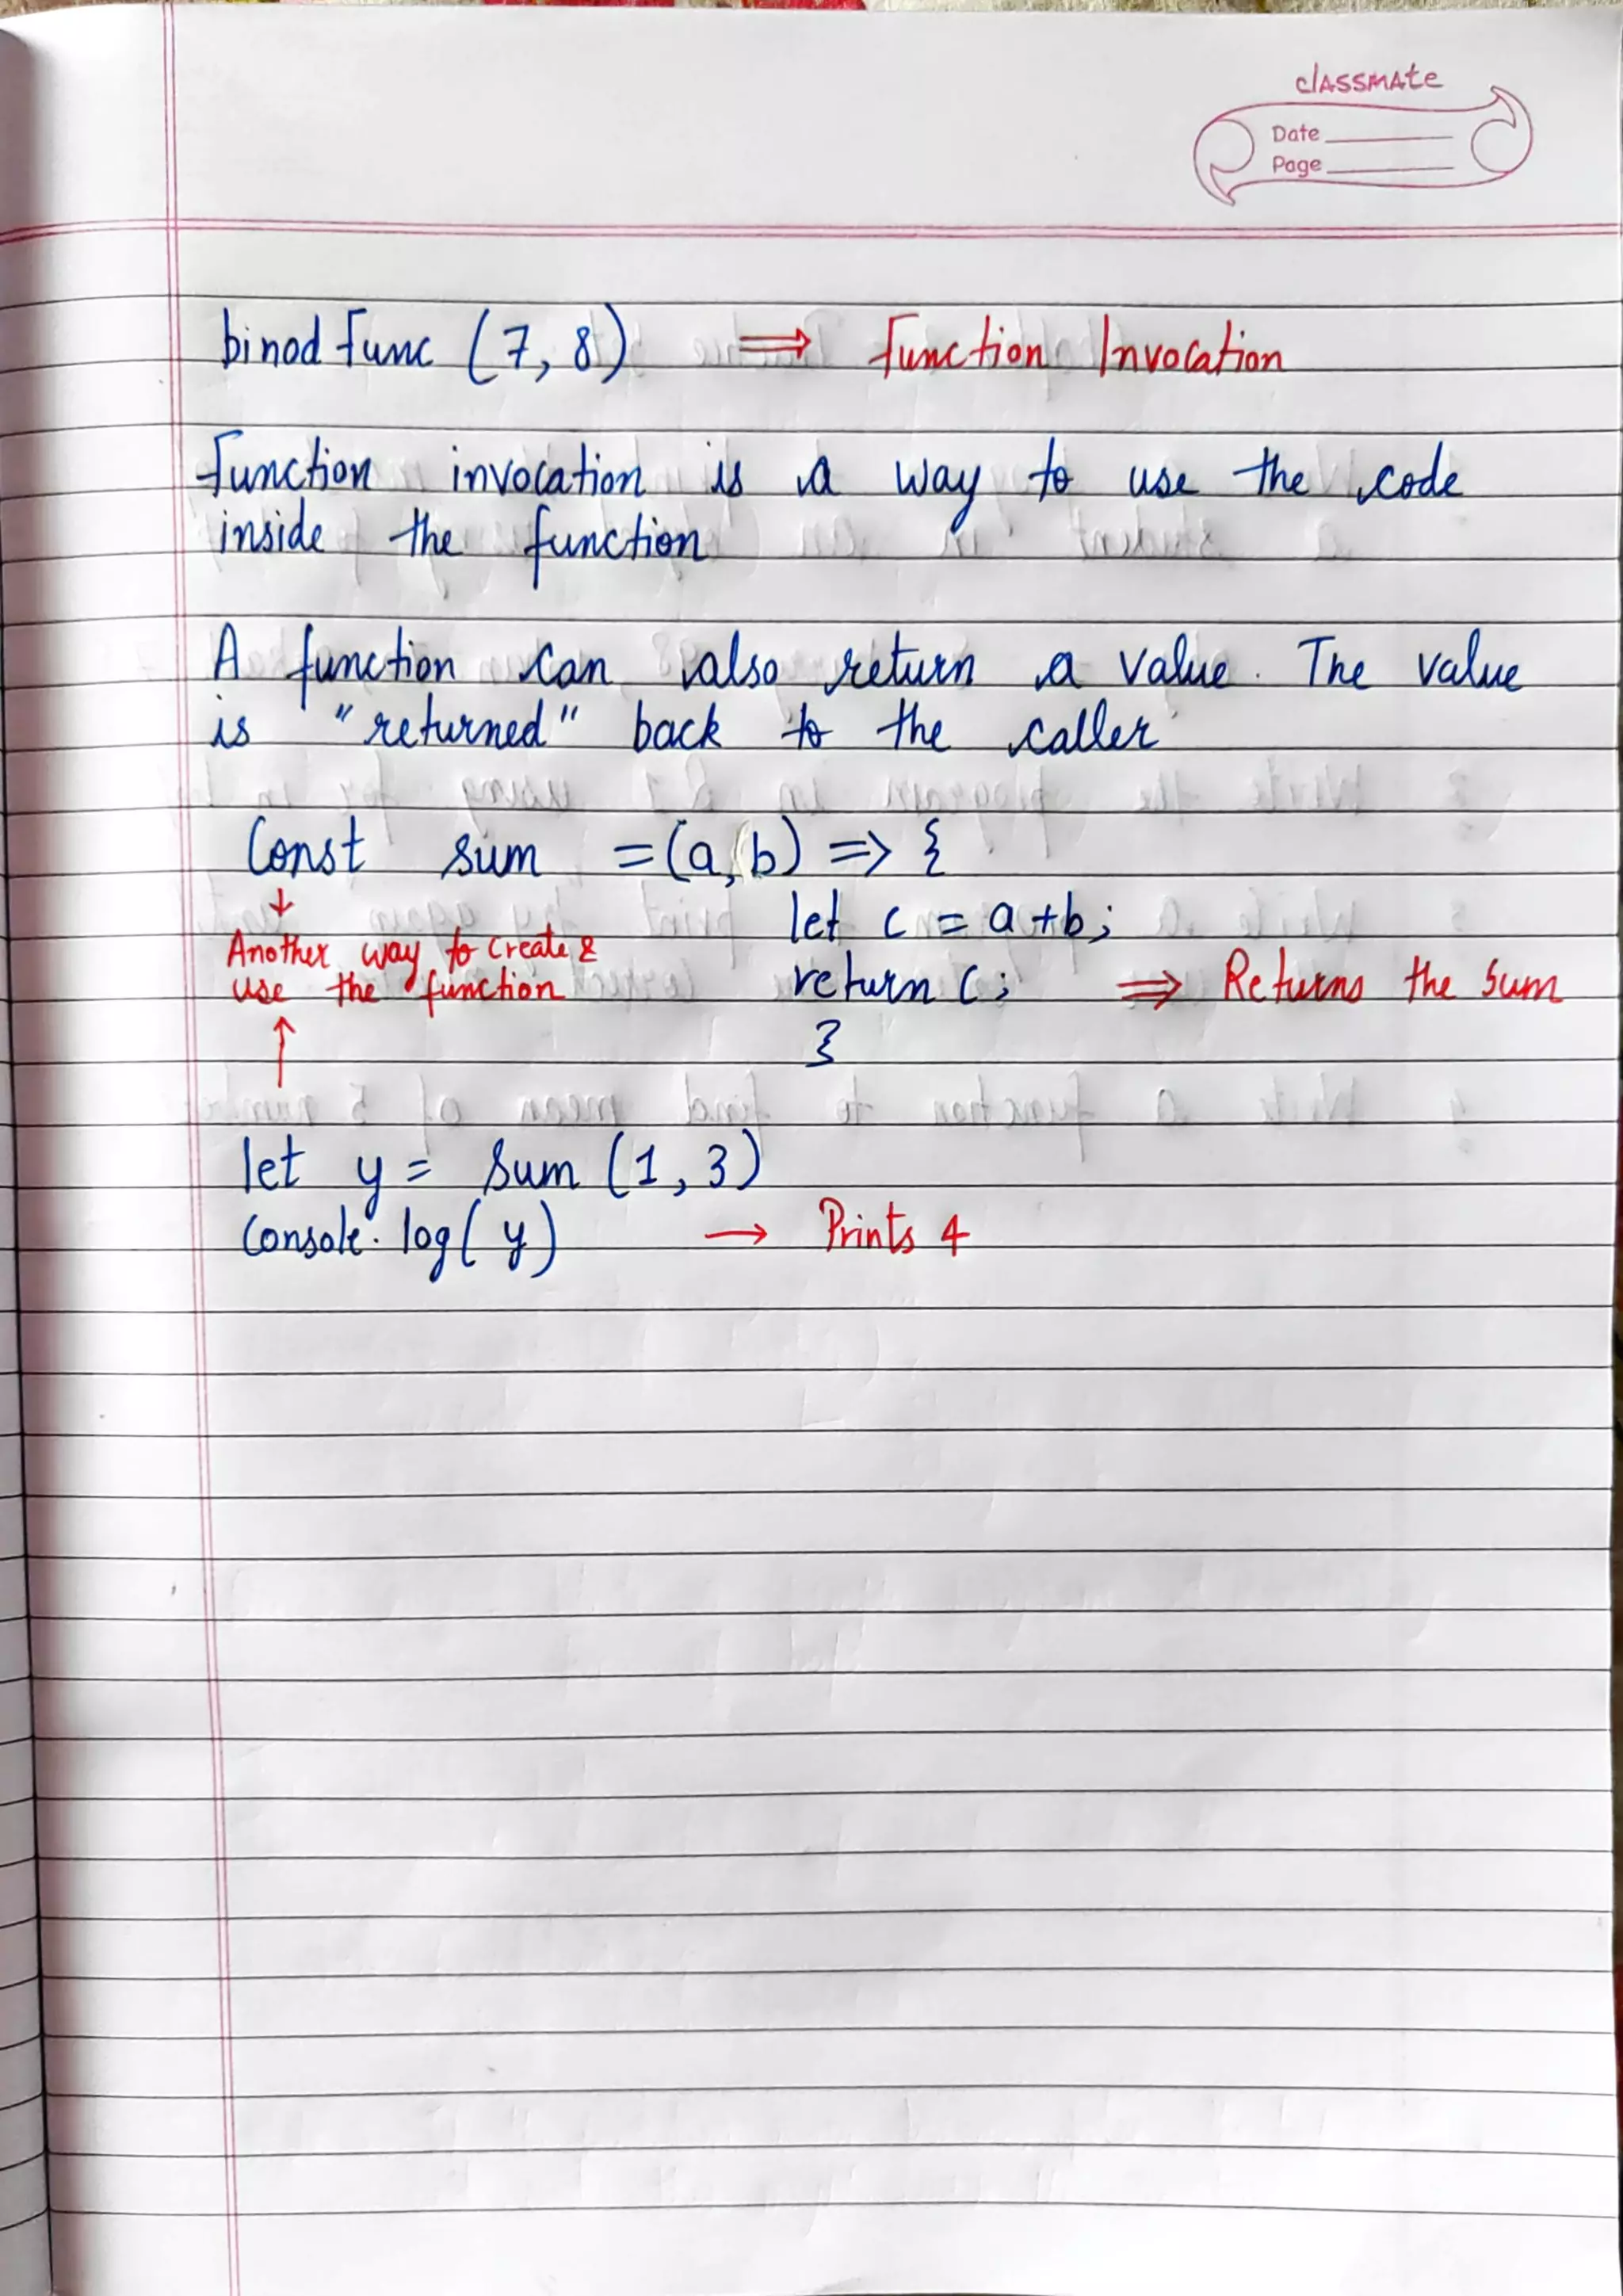 classmate
Date
Page
binodFunc (7, 8) ⟹ Function Invocation
Function invocation is a way to use the code
inside the function
A function can also return a value. The value
is "returned" back to the caller
Const sum = (a, b) => {
let c = a + b;
↓
Another way to create &
use the function
↑
return c; ⟹ Returns the sum
}
let y = sum (1, 3)
Console.log( y) → Prints 4